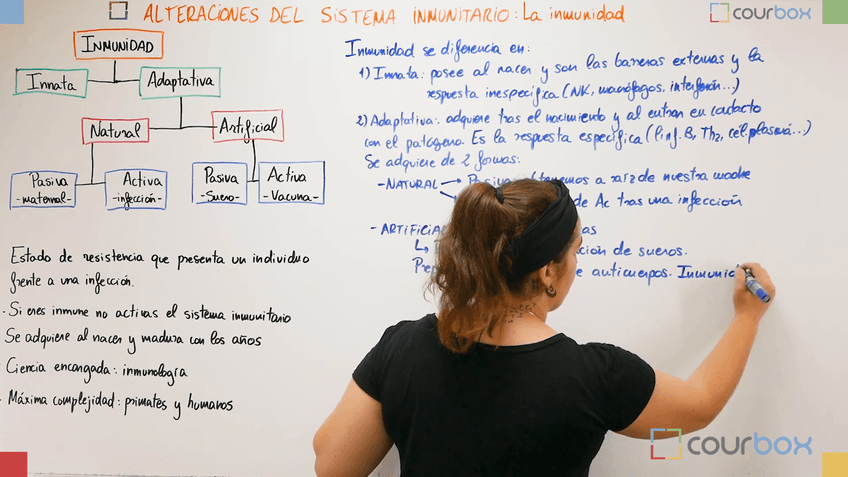 ALTERACIONES DEL SISTEMA INMUNITARIO: La inmunidad
courbox
INMUNIDAD
Innata
Adaptativa
Natural
Artificial
Pasiva
-maternal-
Activa
-infección-
Pasiva
-Suero-
Activa
-Vacuna-
Estado de resistencia que presenta un individuo
frente a una infección.
· Si eres inmune no activas el sistema inmunitario
Se adquiere al nacer y madura con los años
· Ciencia encargada: inmunología
· Máxima complejidad: primates y humanos
Inmunidad se diferencia en:
1) Innata: posee al nacer y son las barreras externas y la
respuesta inespecífica (NK, macrófagos, interferón...)
2) Adaptativa: adquiere tras el nacimiento y al entrar en contacto
con el patógeno. Es la respuesta específica (linf. B, Th2, cél. plasmá...)
Se adquiere de 2 formas:
- NATURAL → (tenemos a raíz de nuestra madre
de Ac tras una infección
- ARTIFICIAL
ción de sueros.
anticuerpos. Inmunid
courbox